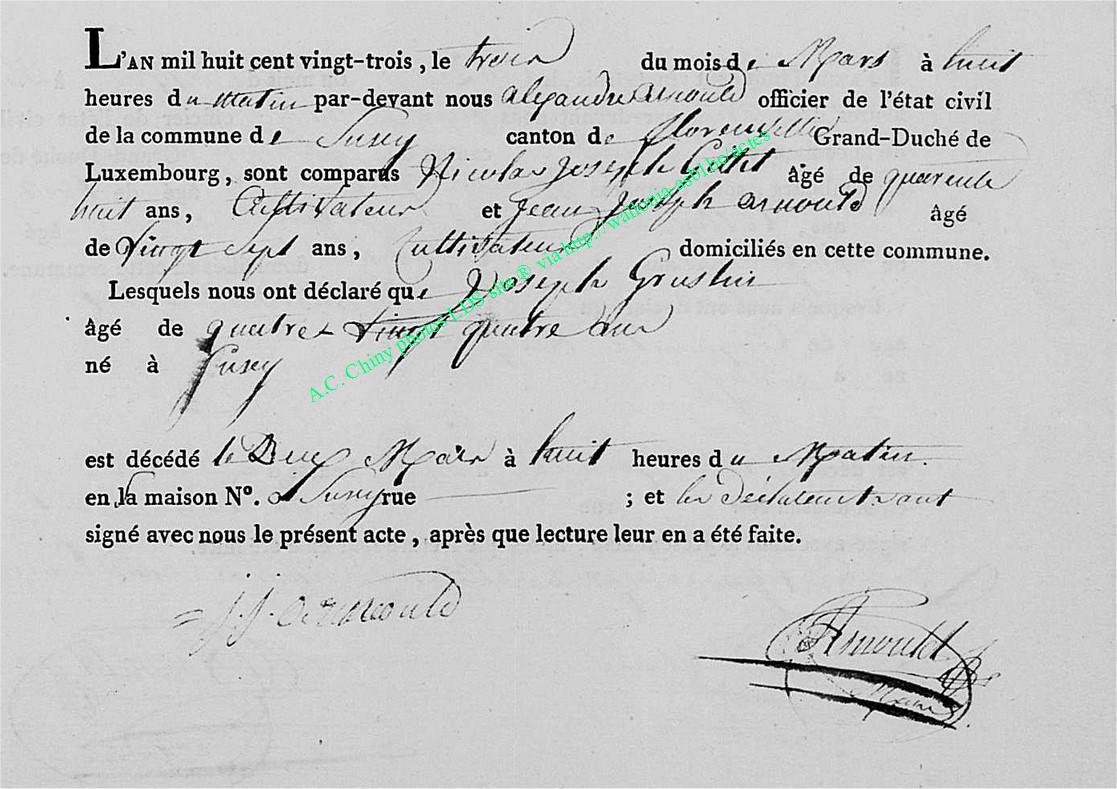 L'AN mil huit cent vingt-trois, le trois du mois de Mars à huit
heures du matin par-devant nous alexandre arnould officier de l'état civil
de la commune de Suxy canton de florenville Grand-Duché de
Luxembourg, sont comparus Nicolas Joseph âgé de quarente
huit ans, Cultivateur et Jean Joseph arnould âgé
de Vingt Sept ans, Cultivateur domiciliés en cette commune.
Lesquels nous ont déclaré que Joseph
âgé de quatre Vingt quatre ans
né à Suxy
est décédé le Deux Mars à huit heures du Matin
en la maison N°. a Suxy rue ; et les Déclarant ont
signé avec nous le présent acte, après que lecture leur en a été faite.
J. J. arnould
Arnould
A.C. Chiny photos LDS site® via http://wallonia-asbl.be/actes